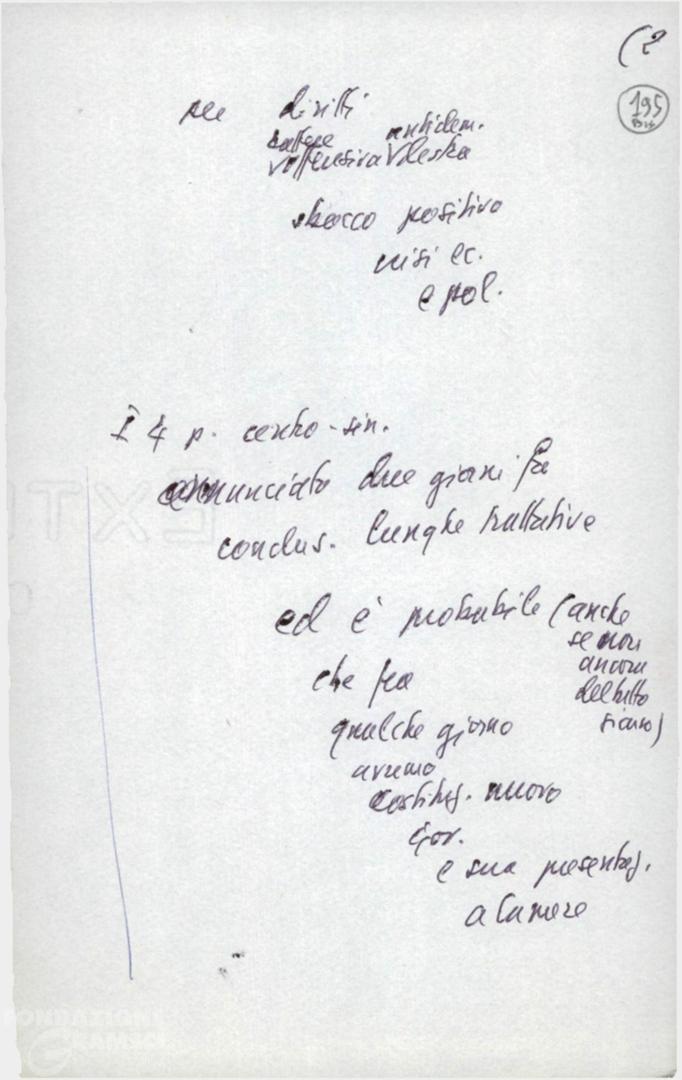 (2
195
bis
per diritti
battere antidem.
l'offensiva V destra
sbocco positivo
crisi ec.
e pol.
I 4 p. centro-sin.
annunciato due giorni fa
conclus. lunghe trattative
ed è probabile (anche
se non
ancora
del tutto
sicuro)
che fra
qualche giorno
avremo
costituz. nuovo
Gov.
e sua presentaz.
a Camere
FONDAZIONE
GRAMSCI